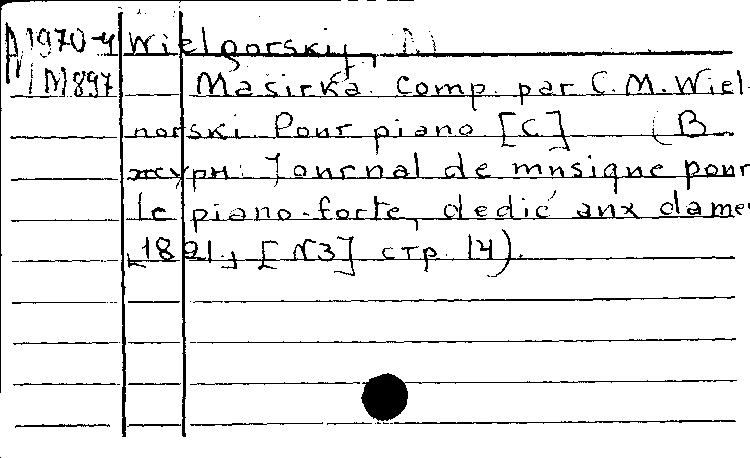 М1970-4 Wielgorskij, M
М897 Masirka. Comp. par C. M. Wiel-
horski. Pour piano [C] (В
журн: Journal de musique pour
le piano-forte, dedié aux dames
1821, [N3] стр. 14).